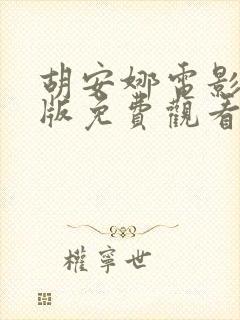 胡安娜電影
版免費觀看
權寧世